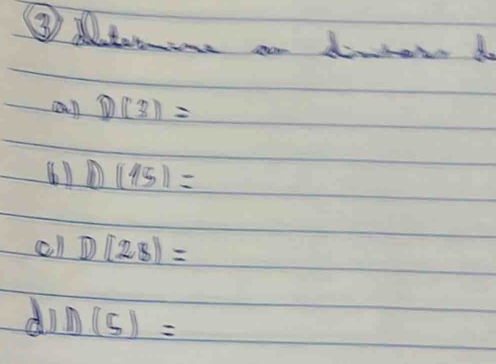 ③ Determine os divisores de
a) D(3) =
b) D(15) =
c) D(28) =
d) D(5) =